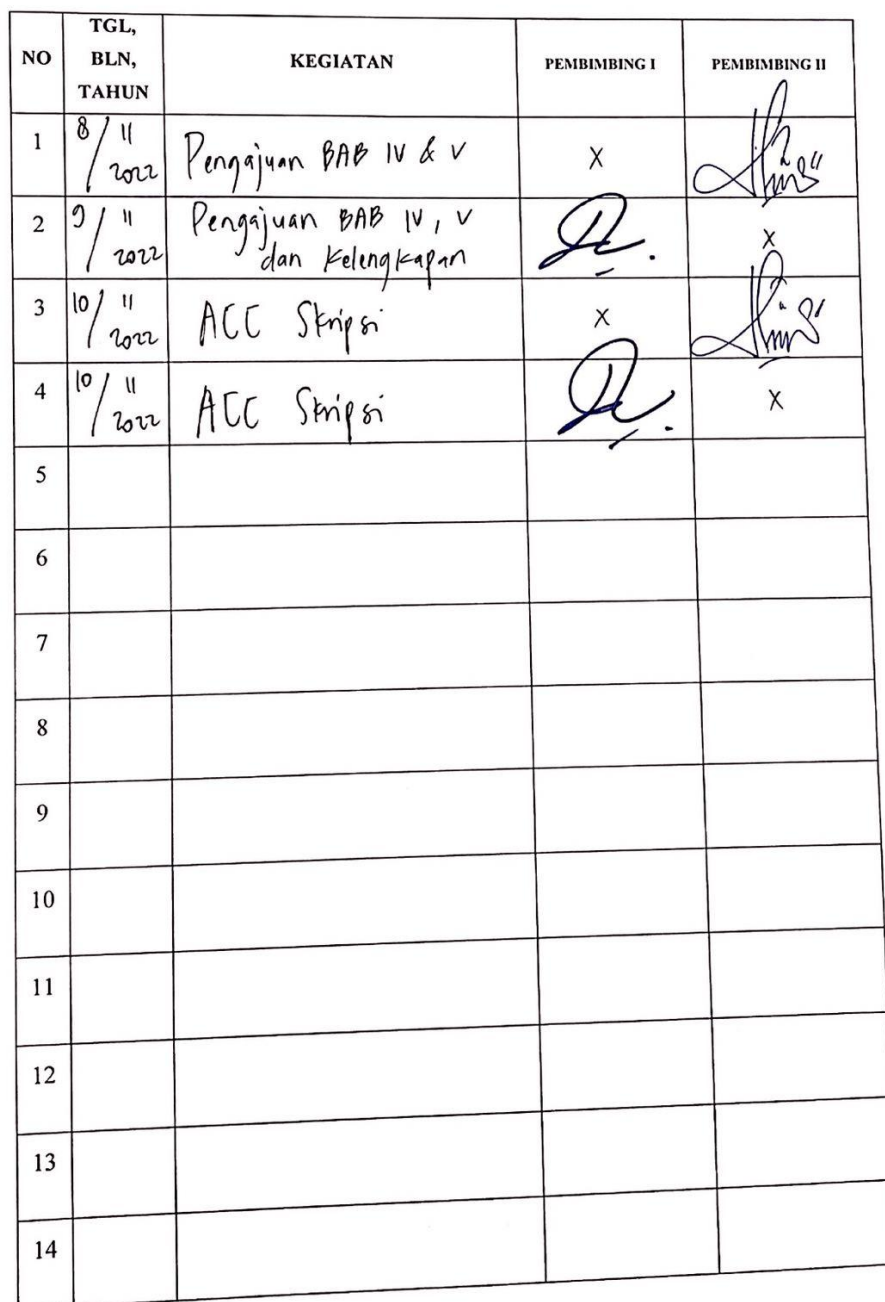 NO TGL, BLN, TAHUN KEGIATAN PEMBIMBING I PEMBIMBING II
1 8/11 2022 Pengajuan BAB IV & V X
2 9/11 2022 Pengajuan BAB IV, V
dan Kelengkapan X
3 10/11 2022 ACC Skripsi X
4 10/11 2022 ACC Skripsi X
5
6
7
8
9
10
11
12
13
14